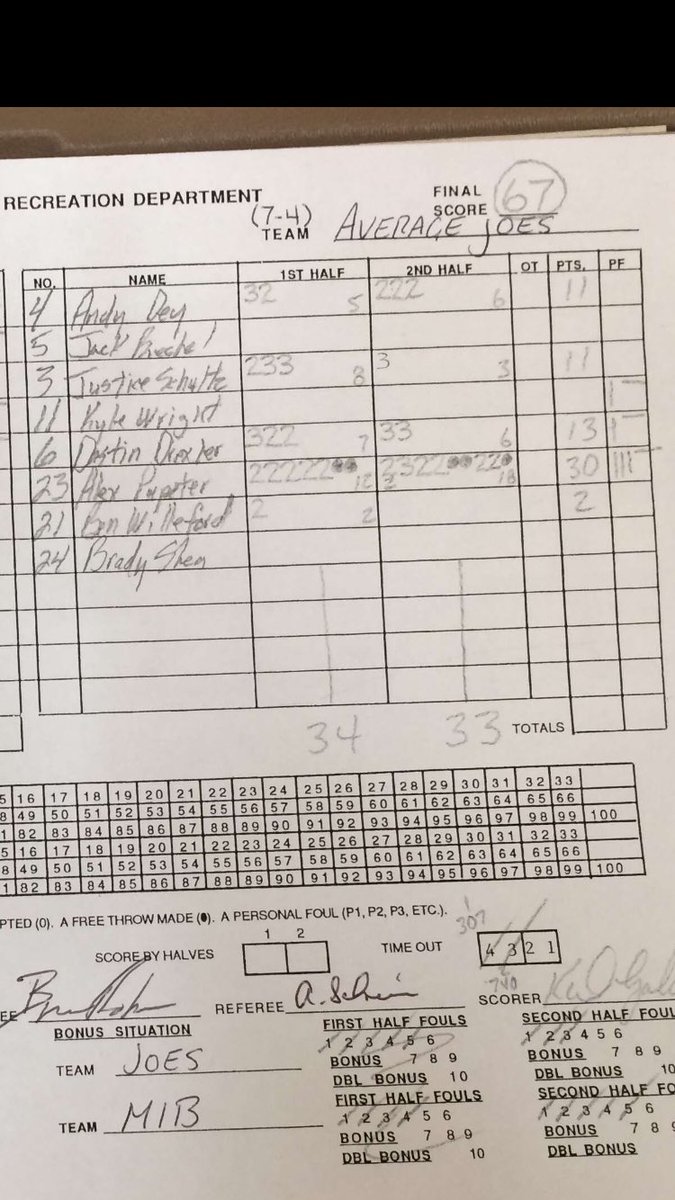 RECREATION DEPARTMENT
FINAL SCORE 67
(7-4)
TEAM AVERAGE JOES
NO. NAME 1ST HALF 2ND HALF OT PTS. PF
4 Andy Dey 32 5 222 6 11
5 Jack
3 Justice Schultz 233 8 3 3 11
11 Kyle Wright
6 Dustin 322 7 33 6 13
23 Alex 22222 12 2322 220 2 18 30
21 Ben Willeford 2 2 2
24 Brady Shen
34 33 TOTALS
5 16 17 18 19 20 21 22 23 24 25 26 27 28 29 30 31 32 33
8 49 50 51 52 53 54 55 56 57 58 59 60 61 62 63 64 65 66
1 82 83 84 85 86 87 88 89 90 91 92 93 94 95 96 97 98 99 100
5 16 17 18 19 20 21 22 23 24 25 26 27 28 29 30 31 32 33
8 49 50 51 52 53 54 55 56 57 58 59 60 61 62 63 64 65 66
1 82 83 84 85 86 87 88 89 90 91 92 93 94 95 96 97 98 99 100
PTED (0). A FREE THROW MADE (●). A PERSONAL FOUL (P1, P2, P3, ETC.).
1 2
SCORE BY HALVES TIME OUT 4 3 2 1
EE REFEREE SCORER
BONUS SITUATION
TEAM JOES
TEAM MIB
FIRST HALF FOULS
1 2 3 4 5 6
BONUS 7 8 9
DBL BONUS 10
FIRST HALF FOULS
1 2 3 4 5 6
BONUS 7 8 9
DBL BONUS 10
SECOND HALF FOU
1 2 3 4 5 6
BONUS 7 8 9
DBL BONUS 10
SECOND HALF FO
1 2 3 4 5 6
BONUS 7 8 9
DBL BONUS